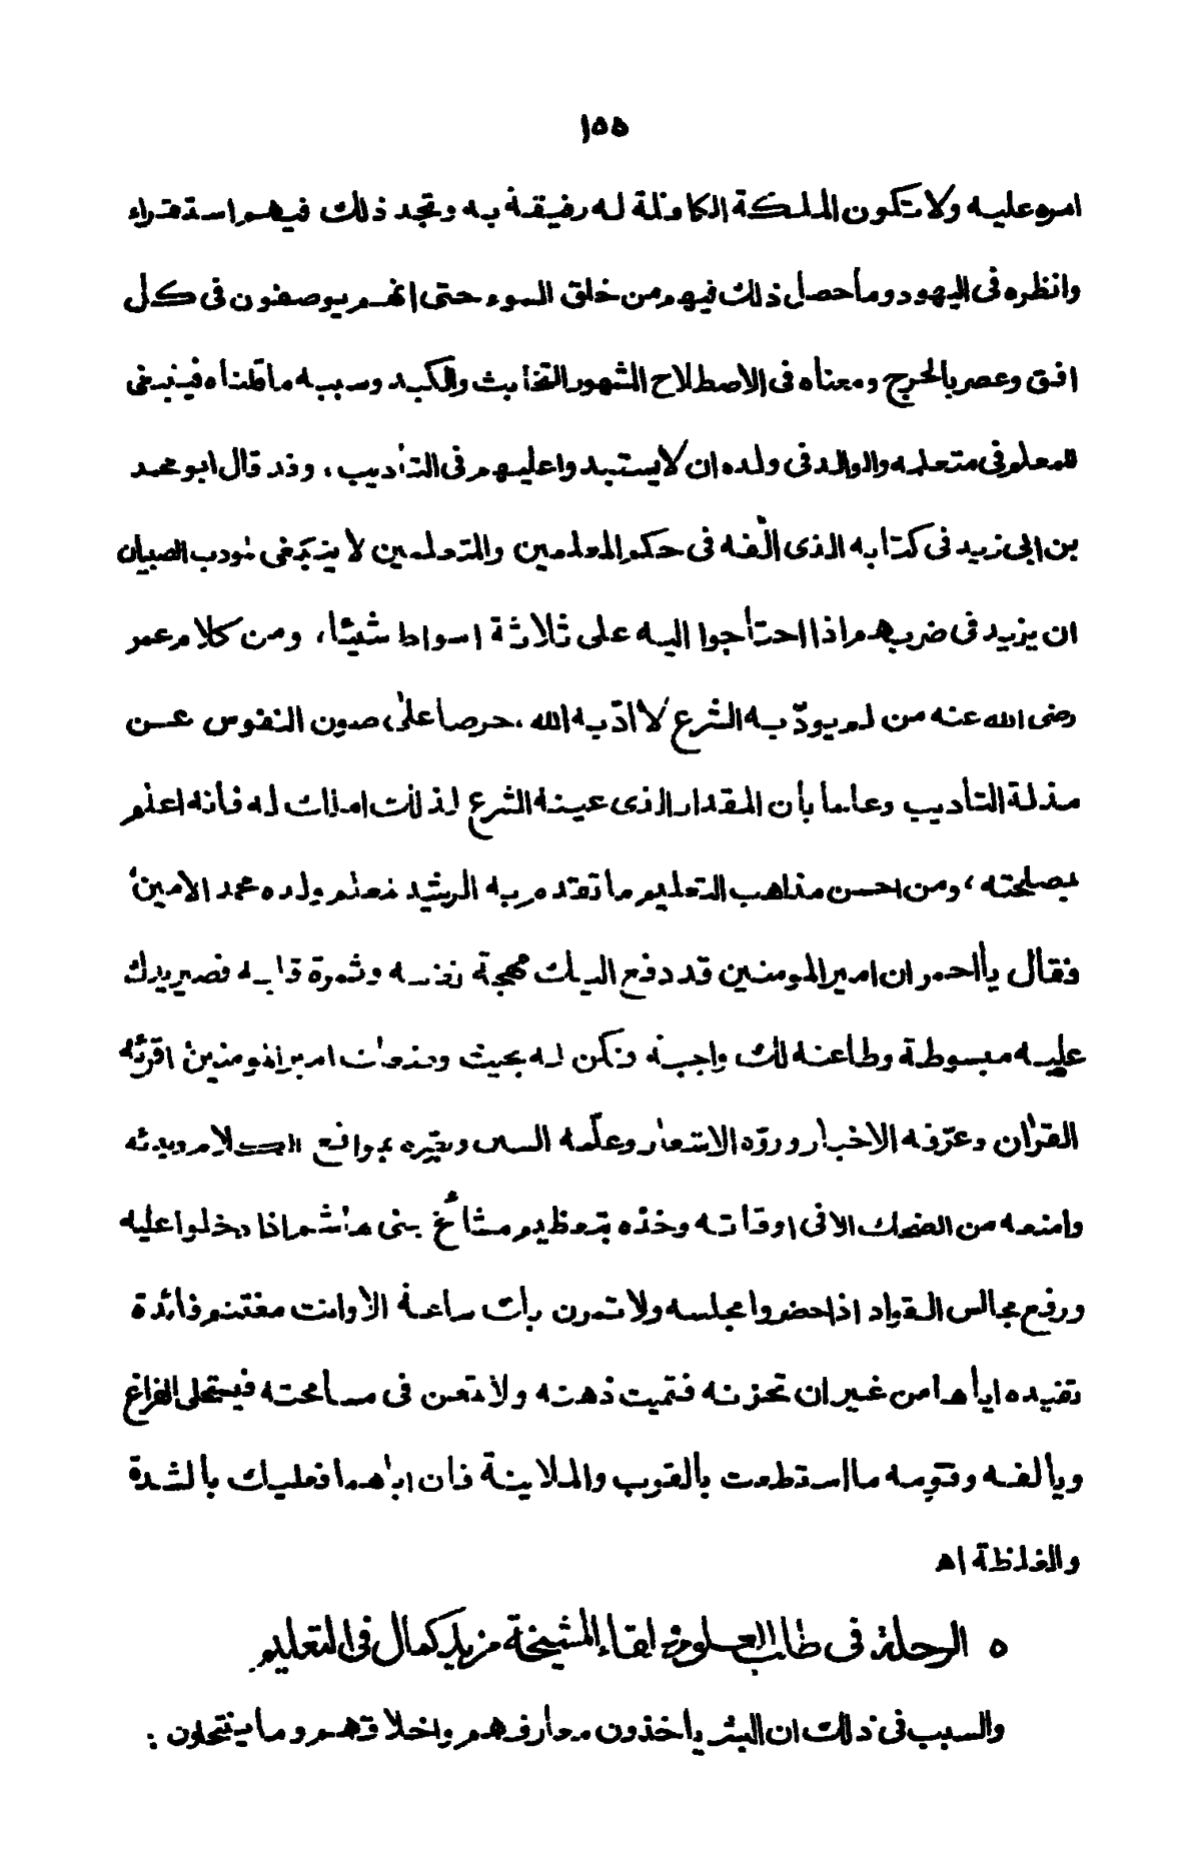 ١٥٥
امره عليه ولا تكون الملكة الكافلة له رفيقة به وتجد ذلك فيهم استقراء
وانظره فى اليهود وما حصل ذلك فيهم من خلق السوء حتى انهم يوصفون فى كل
افق وعصر بالحرج ومعناه فى الاصطلاح المشهور التخابث والكيد وسببه ما قلناه فينبغى
للمعلم فى متعلمه والوالد فى ولده ان لا يستبدوا عليهم فى التأديب، وقد قال ابو محمد
بن ابى زيد فى كتابه الذى الّفه فى حكم المعلمين والمتعلمين لا ينبغى لمودب الصبيان
ان يزيد فى ضربهم اذا احتاجوا اليه على ثلاثة اسواط شيئا، ومن كلام عمر
رضى الله عنه من لم يودّبه الشرع لا ادّبه الله، حرصا على صون النفوس عن
مذلة التأديب وعلما بأن المقدار الذى عينه الشرع لذلك املك له فانه اعلم
بمصلحته، ومن احسن مذاهب التعليم ما تقدم به الرشيد لمعلم ولده محمد الامين
فقال يا احمر ان امير المومنين قد دفع اليك مهجة نفسه وثمرة قلبه فصير يدك
عليه مبسوطة وطاعته لك واجبة فكن له بحيث وضعك امير المومنين اقرئه
القرأن وعرّفه الاخبار وروّه الاشعار وعلّمه السنن وبصّره بمواقع الكلام وبدئه
وامنعه من الضحك الا فى اوقاته وخذه بتعظيم مشائخ بنى هاشم اذا دخلوا عليه
ورفع مجالس القواد اذا حضروا مجلسه ولا تمرن بك ساعة الا وانت مغتنم فائدة
تفيده اياها من غير ان تحزنه فتميت ذهنه ولا تمعن فى مسامحته فيستحلى الفراغ
ويألفه وقوّمه ما استطعت بالقرب والملاينة فان اباهما فعليك بالشدة
والغلظة اه
٥ الرحلة فى طلب العلوم ولقاء المشيخة مزيد كمال فى التعليم
والسبب فى ذلك ان البشر ياخذون معارفهم واخلاقهم وما ينتحلون :